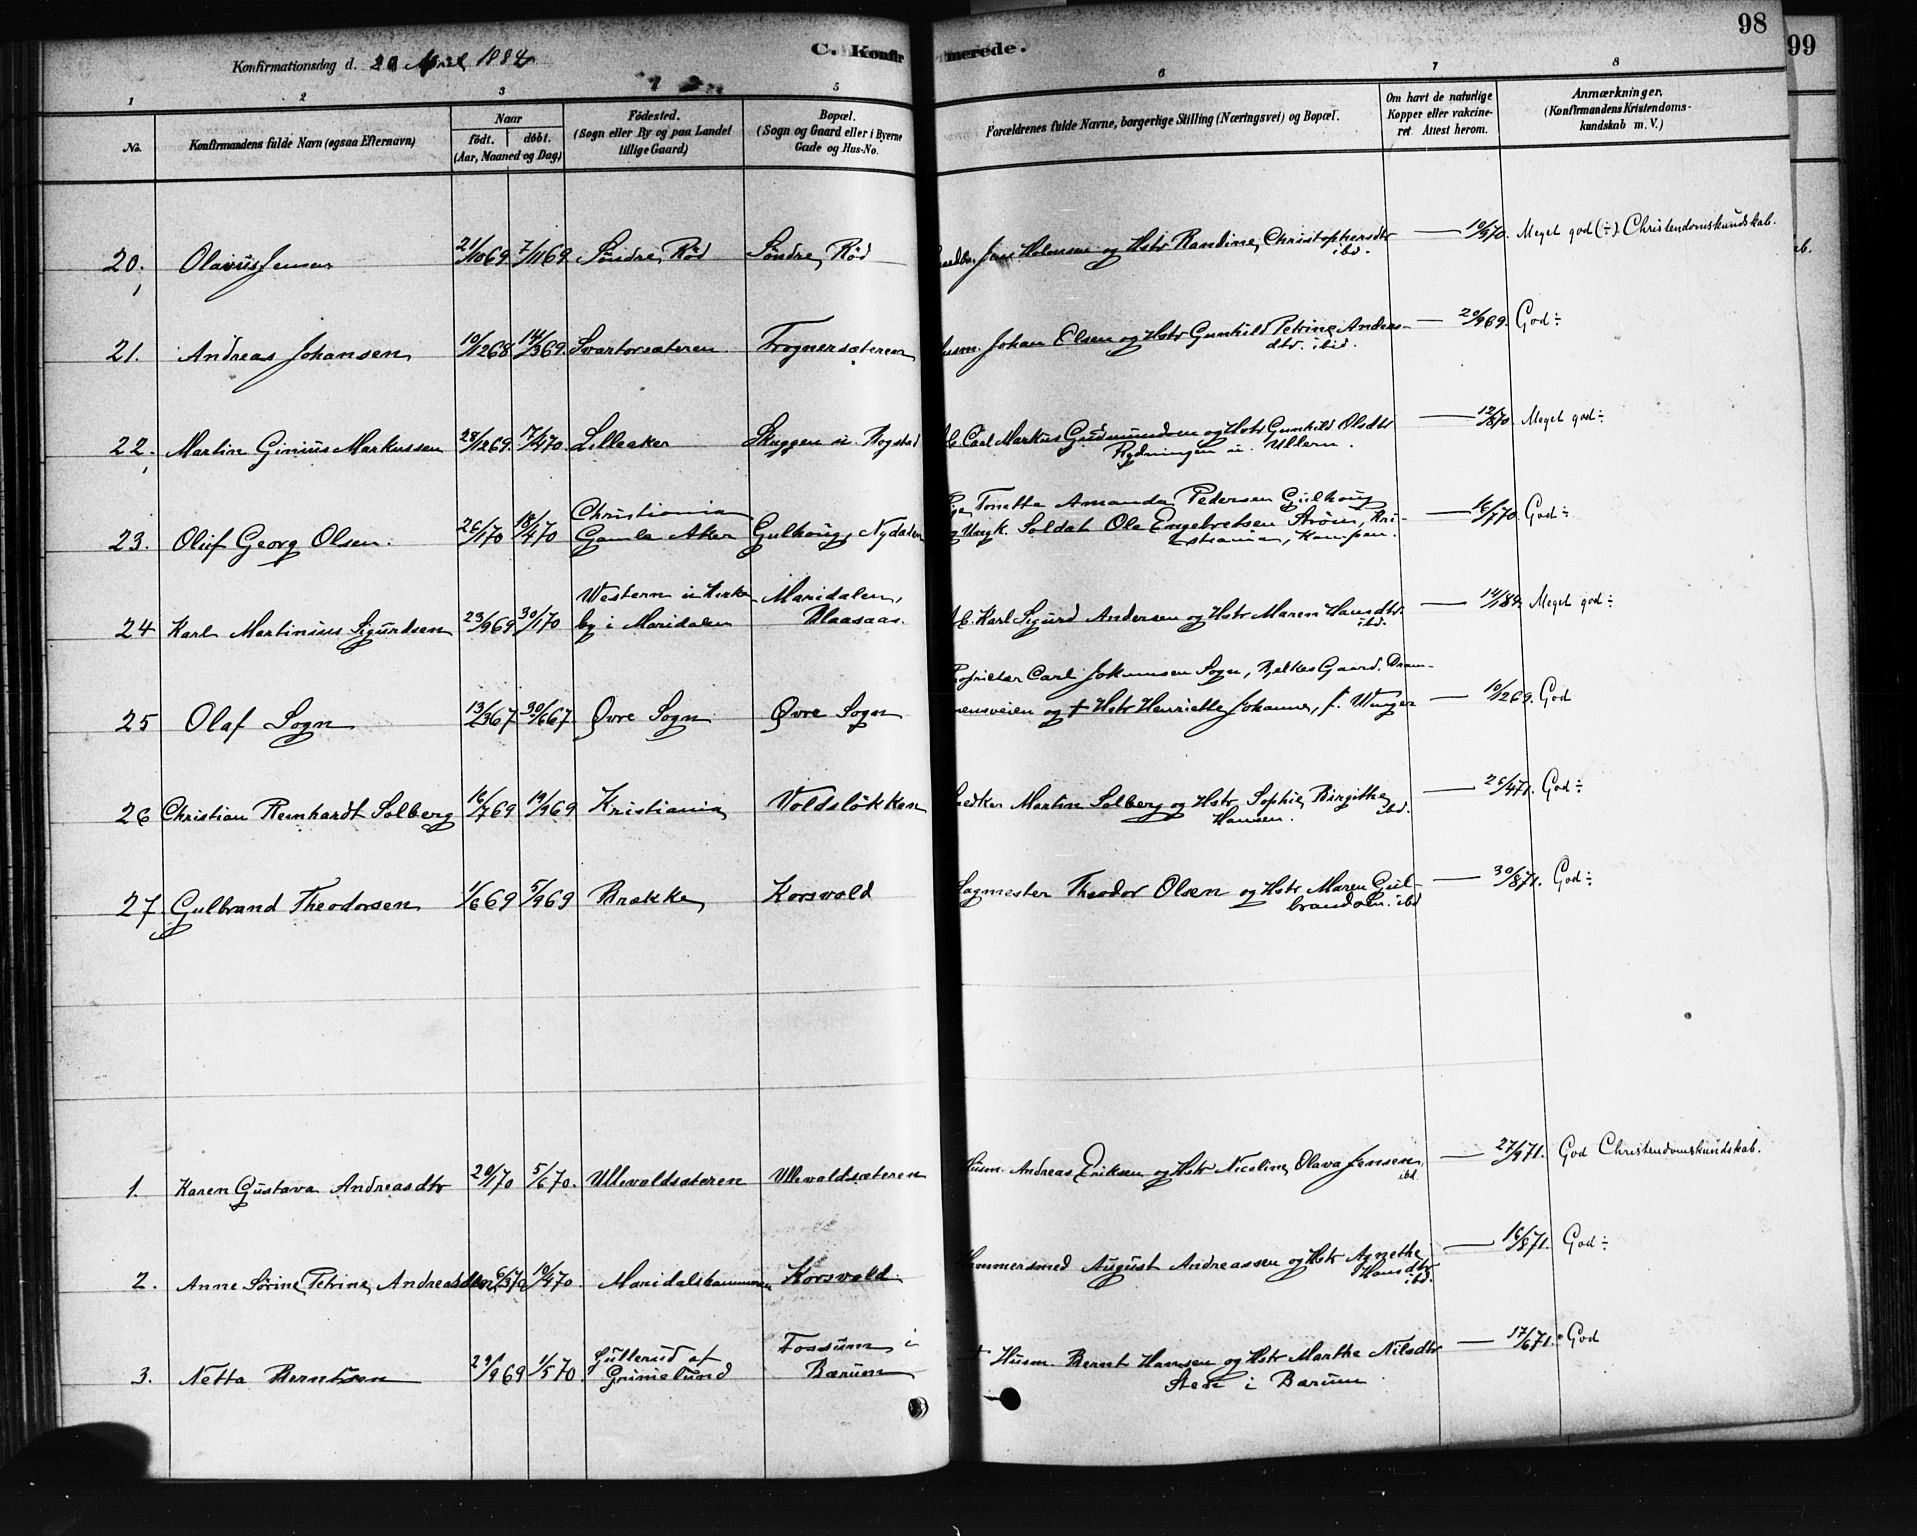 98
99
Konfirmationsdag d. 20 April 1884
C. Konfirmerede.
1 2 3 5 6 7 8
No. Konfirmandens fulde Navn (ogsaa Efternavn) Naar født. døbt. (Aar, Maaned og Dag) Fødested. (Sogn eller By og paa Landet tillige Gaard) Bopæl. (Sogn og Gaard eller i Byerne Gade og Hus-No. Forældrenes fulde Navne, borgerlige Stilling (Næringsvei) og Bopæl. Om havt de naturlige Kopper eller vakcineret. Attest herom. Anmærkninger. (Konfirmandens Kristendomskundskab m. V.)
20. Olavus Jensen 21/10 69 7/11 69 Söndre Röd Söndre Röd Jens Holmsen og Hstr Randine Christophersdtr ibd. — 10/9 70. Meget god (÷) Christendomskundskab.
21. Andreas Johansen 10/12 68 14/3 69. Svartorsæteren Frognersæteren Husm. Johan Olsen og Hstr Gunhild Petrine Andersdtr. ibid. — 20/9 69. God ÷
22. Martin Ginius Markussen 28/12 69. 17/4 70. Lilleaker Skuggen u. Bogstad Carl Markus Gudmundsen og Hstr Gunhild Olsdtr Rydningen u. Ullern. — 12/8 70. Meget god ÷
23. Oluf Georg Olsen. 26/1 70 18/4 70 Christiania Gamle Aker Gulhoug, Nydalen Pige Tonette Amanda Pedersen Gulhoug og Ungk. Soldat Ole Engebretsen Ström, Kristiania, Kampen. — 16/7 70. God ÷
24 Karl Martinius Sigurdsen 23/9 69 30/1 70 Western u Kirkeby i Maridalen Maridalen, Blaasaas. Karl Sigurd Andersen og Hstr Maren Hansdtr. ibd. — 14/1 84. Meget god ÷
25 Olaf Sogn 13/3 67 30/6 67 Øvre Sogn Øvre Sogn Proprietær Carl Johannsen Sogn, Bjelkes Gaard, Drammensveien og † Hstr Henriette Johanne, f. Winger — 10/12 69. God
26 Christian Reinhardt Solberg 16/7 69 19/9 69 Kristiania Voldslökken Snedker Martin Solberg og Hstr Sophie Birgitthe Hansen. ibd. — 26/4 71. God ÷
27. Gulbrand Theodorsen 1/6 69 5/9 69 Brække Korsvold Sagmester Theodor Olsen og Hstr Maren Gulbrandsen. ibd — 30/8 71. God ÷
1. Karen Gustava Andreasdtr 20/1 70 5/6 70. Ullevoldsæteren Ullevoldsæteren Husm. Andreas Eriksen og Hstr Nicoline Olava Jensen, ibd. — 27/9 71. God Christendomskundskab.
2. Anne Sörine Petrine Andreasdtr 6/3 70 10/4 70. Maridalshammeren Korsvold Hammersmed August Andreassen og Hstr Agnethe Hansdtr ibd. — 16/8 71. God ÷
3. Netta Berntsen 29/9 69 1/5 70 Gullerud af Grimelund Fossum i Bærum † Husm. Bernt Hansen og Hstr Marthe Nilsdtr Sten i Bærum — 17/6 71. God